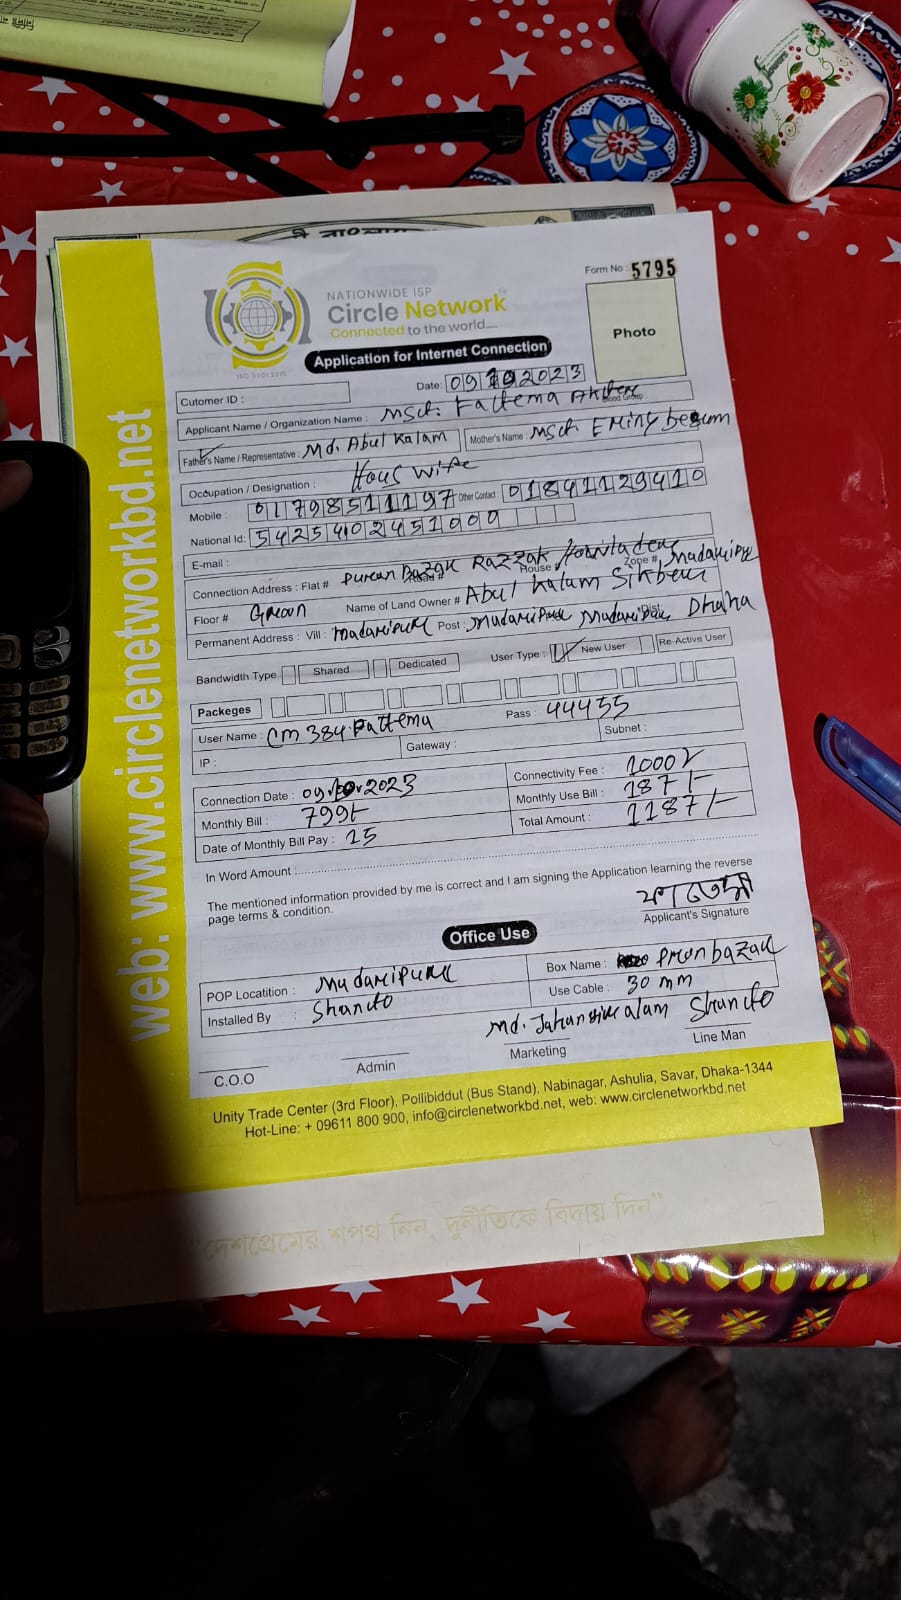 Form No : 5795
NATIONWIDE ISP
Circle Network
Connected to the world....
ISO 9001:2015
Photo
Application for Internet Connection
Date: 09 10 2023
Cutomer ID :
Applicant Name / Organization Name : Msct. Fattema Akter
Blood Group :
Father's Name / Representative : Md. Abul Kalam Mother's Name : Msct Eminy begum
Occupation / Designation : Hous wife
Mobile : 01798511197 Other Contact 01841129410
National Id: 5425402451000
E-mail :
Connection Address : Flat # puran Bazar Road # Razzak House # Howladar Zone # Madaripur
Floor # Groon Name of Land Owner # Abul Kalam Sikder
Permanent Address : Vill : Madaripur Post : Madaripur Dist. Madaripur Dhaka
Bandwidth Type Shared Dedicated User Type : New User Re-Active User
Packeges
User Name : CM384.Fattema Pass : 44455
IP : Gateway : Subnet :
Connection Date : 09.10.2023 Connectivity Fee : 1000/-
Monthly Bill : 799/- Monthly Use Bill : 187/-
Date of Monthly Bill Pay : 15 Total Amount : 1187/-
In Word Amount :
The mentioned information provided by me is correct and I am signing the Application learning the reverse
page terms & condition.
ফাতেমা
Applicant's Signature
Office Use
POP Locatition : Madaripur Box Name : Preonbazar
Installed By : Shanto Use Cable : 30 mm
Md. Jahangir alam Shanto
C.O.O Admin Marketing Line Man
Unity Trade Center (3rd Floor), Pollibiddut (Bus Stand), Nabinagar, Ashulia, Savar, Dhaka-1344
Hot-Line: + 09611 800 900, info@circlenetworkbd.net, web: www.circlenetworkbd.net
web: www.circlenetworkbd.net
"দেশপ্রেমের শপথ নিন, দুর্নীতিকে বিদায় দিন"